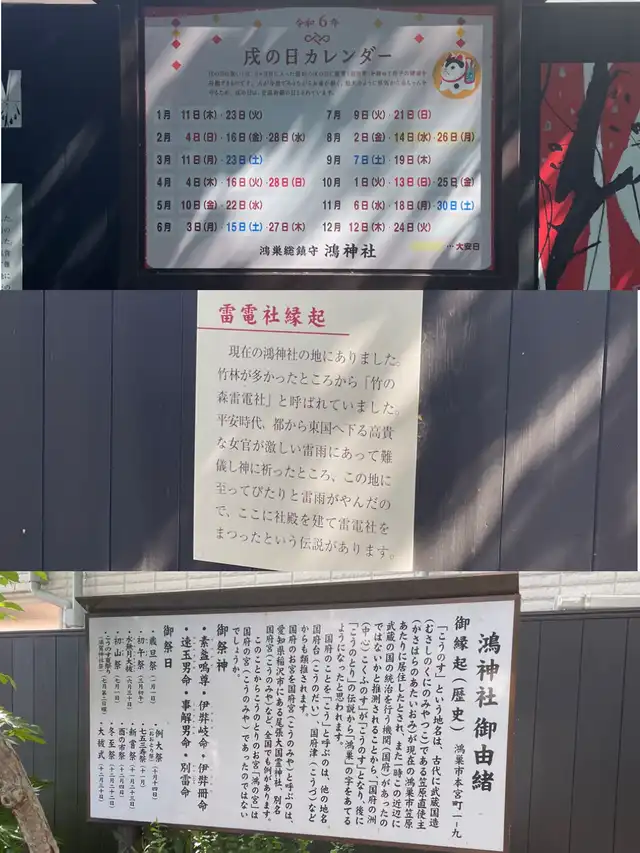 令和6年
戌の日カレンダー
1月 11日(木)・23日(火)
2月 4日(日)・16日(金)・28日(水)
3月 11日(月)・23日(土)
4月 4日(木)・16日(火)・28日(日)
5月 10日(金)・22日(水)
6月 3日(月)・15日(土)・27日(木)
7月 9日(火)・21日(日)
8月 2日(金)・14日(水)・26日(月)
9月 7日(土)・19日(木)
10月 1日(火)・13日(日)・25日(金)
11月 6日(水)・18日(月)・30日(土)
12月 12日(木)・24日(火)
…大安日
鴻巣総鎮守 鴻神社
雷電社縁起
現在の鴻神社の地にありました。
竹林が多かったところから「竹の
森雷電社」と呼ばれていました。
平安時代、都から東国へ下る高貴
な女官が激しい雷雨にあって難
儀し神に祈ったところ、この地に
至ってぴたりと雷雨がやんだの
で、ここに社殿を建て雷電社を
まつったという伝説があります。
鴻神社 御由緒
御縁起(歴史) 鴻巣市本宮町一-九
「こうのす」という地名は、古代に武蔵国造
(むさしのくにのみやつこ)である笠原直使主
(かさはらのあたいおみ)が現在の鴻巣市笠原
あたりに居住したとされ、また一時この近辺に
武蔵の国の統治を行う機関(国府)があったの
ではないかと推測されることから「国府の洲
(中心)こくふのす」が「こうのす」となり、後に
「こうのとり」の伝説から「鴻巣」の字をあてる
ようになったと思われます。
国府のことを「こう」と呼ぶのは、他の地名、
国府台(こうのだい)、国府津(こうづ)など
からも類推されます。
国府のお宮を国府宮(こうのみや)と呼ぶのは、
愛知県稲沢市にある尾張大国霊神社、別名
国府宮(こうのみや)など、全国でも例があります。
このことからこうのとりのお宮「鴻の宮」は
国府の宮(こうのみや)であったのではない
でしょうか。
御祭神
・素盞嗚尊・伊弉岐命・伊弉冊命
・速玉男命・事解男命・別雷命
御祭日
・歳旦祭(一月一日)
・初午祭(三月初午)
・水無月大祓(六月三十日)
・初山祭(七月一日)
・こうのす夏祭り
例大祭(十月十四日)
(おおとり祭)
七五三寿祭(十一月)
新嘗祭(十一月二十三日)
酉の市祭(十二月四日)
冬至祭(十二月二十二日)
大祓式(十二月三十日)